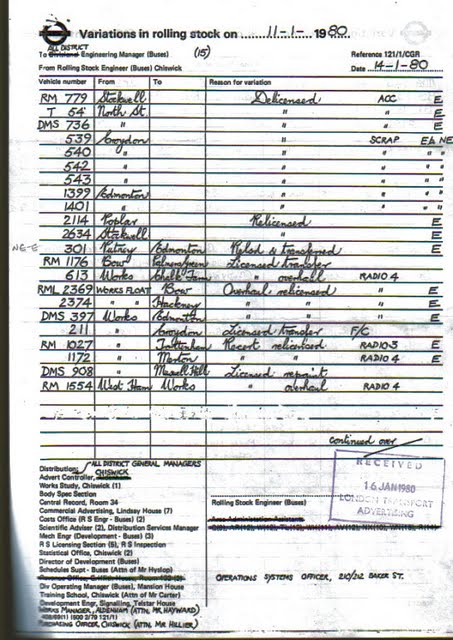 Variations in rolling stock on 11-1- 1980
ALL DISTRICT
To Divisional Engineering Manager (Buses) (15) Reference 121/1/CGR
From Rolling Stock Engineer (Buses) Chiswick Date 14-1-80
Vehicle number From To Reason for variation
RM 779 Stockwell Delicensed ACC E
T 54 North St. " " E
DMS 736 " " " E
539 Croydon " SCRAP E& NE
540 " " " " "
542 " " " " "
543 " " " " "
1399 Edmonton " " " "
1401 " " " " "
2114 Poplar Relicensed E
2634 Stockwell " E
NE-E 301 Putney Edmonton Relsd & transferred E
RM 1176 Bow Palmersheim Licensed transfer
613 Works Chalk Farm " overhaul RADIO 4
RML 2369 WORKS FLOAT Bow Overhaul relicensed E
2374 " " Hackney " " E
DMS 397 Works Edmonton " " E
211 " Croydon Licensed transfer F/C
RM 1027 " Tottenham Recert relicensed RADIO-3 E
1172 " Merton " " RADIO 4 E
DMS 908 " Muswell Hill Licensed repaint
RM 1554 West Ham Works " overhaul RADIO 4
continued over
RECEIVED
16 JAN 1980
LONDON TRANSPORT
ADVERTISING
Distribution: ALL DISTRICT GENERAL MANAGERS
CHISWICK
Advert Controller, Aldenham
Works Study, Chiswick (1)
Body Spec Section
Central Record, Room 34
Commercial Advertising, Lindsey House (7)
Costs Office (R S Engr - Buses) (2)
Scientific Adviser (2), Distribution Services Manager
Mech Engr (Development) - Buses (3)
R S Licensing Section (5), R S Inspection
Statistical Office, Chiswick (2)
Director of Development (Buses)
Schedules Supt - Buses (Attn of Mr Hyslop)
Div Operating Manager (Buses), Mansion House
Training School, Chiswick (Attn of Mr Carter)
Development Engr, Signalling, Telstar House
WORKS MANAGER, ALDENHAM (ATTN. MR. HAYWARD)
PURCHASING OFFICER, CHISWICK (ATTN. MR HILLIER)
Rolling Stock Engineer (Buses)
Area Administration Assistants
OPERATIONS SYSTEMS OFFICER, 210/212 BAKER ST.